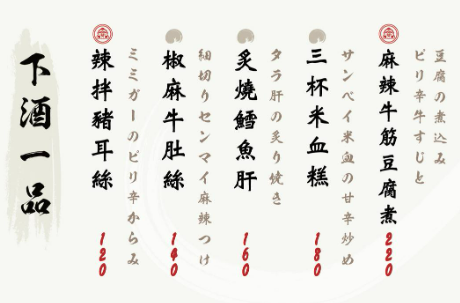 豆腐の煮込み
ピリ辛牛すじと
麻辣牛筋豆腐煮
220
サンベイ米血の甘辛炒め
三杯米血糕
180
タラ肝の炙り焼き
炙燒鱈魚肝
160
細切りセンマイ麻辣つけ
椒麻牛肚絲
140
ミミガーのピリ辛からみ
辣拌豬耳絲
120
下酒一品